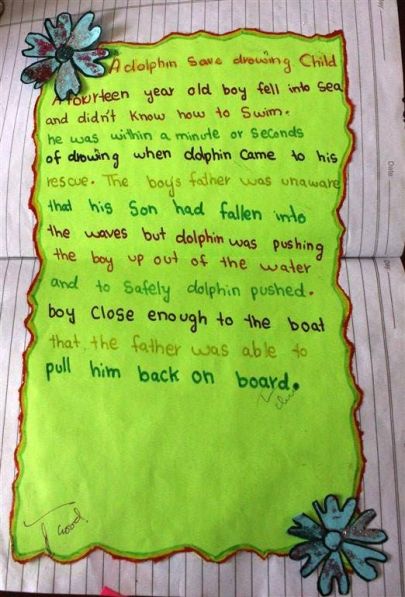 A dolphin Save drowing Child
A fourteen year old boy fell into Sea
and didn't Know how to Swim.
he was within a minute or Seconds
of drowing when dolphin Came to his
rescue. The boys father was unaware
that his Son had fallen into
the waves but dolphin was pushing
the boy up out of the water
and to Safely dolphin pushed.
boy Close enough to the boat
that the father was able to
pull him back on board.
Good
Date: